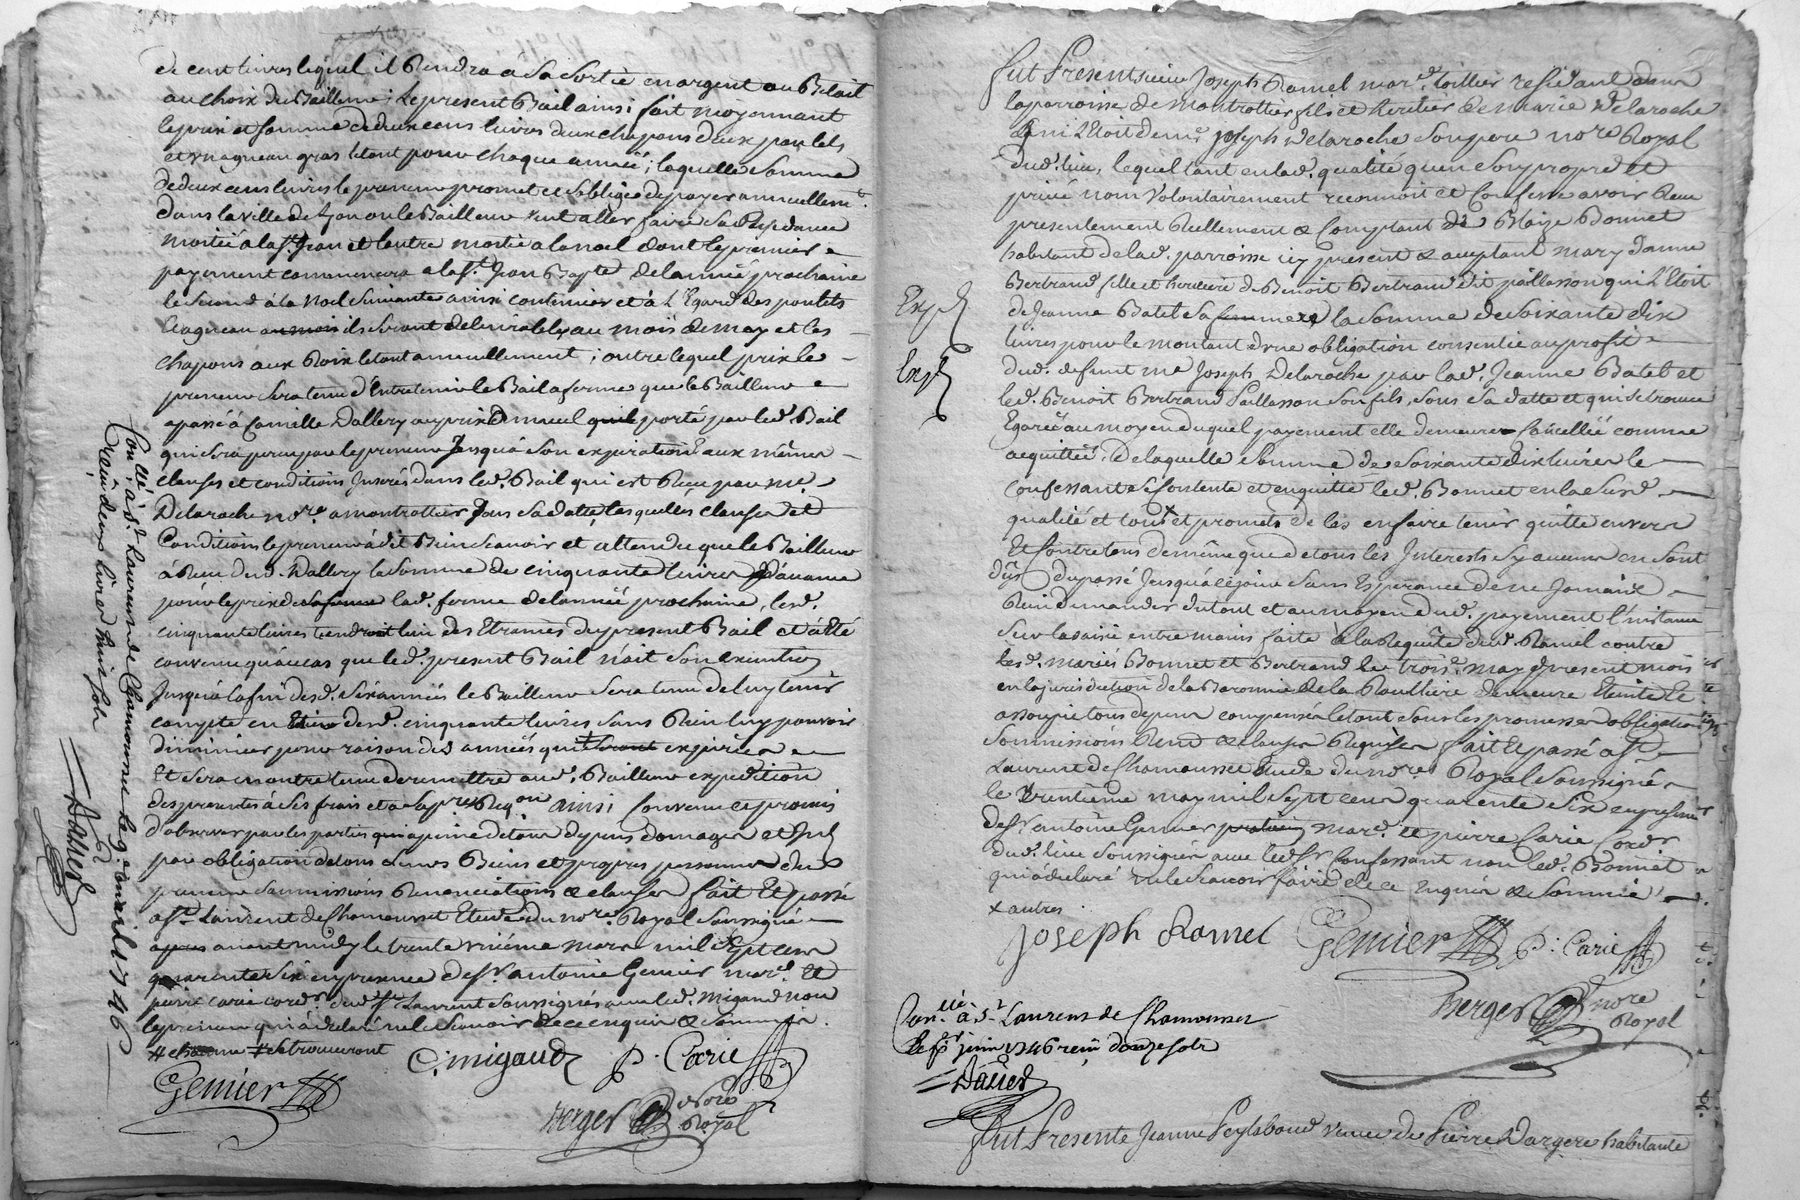 de cent livres lequel il Rendra a Sa Sortie en argent ou Betail
au choix du Bailleur; Le present Bail ainsi fait moyennant
le prix et somme de deux cens livres deux chapons deux poulets
et un agneau gras le tout pour chaque année; laquelle Somme
de deux cens livres le preneur promet et s'oblige de payer annuellemt.
dans la ville de Lyon ou le Bailleur veut aller faire Sa Residence
moitié a la st. Jean et l'autre moitié a la noel dont le premier
payement commencera a la st. Jean Bapte de l'année prochaine
le Second à la Noel Suivante ainsi continuer et à L'Egard des poulets
L'agneau ils Seront delivrables au mois de may et les
chapons aux Rois le tout annuellement; outre lequel prix le
preneur Sera tenu d'Entretenir le Bail a ferme que le Bailleur
a passé à Camille Dallery au prix annuel porté par led. Bail
qui Sera perçu par le preneur Jusqu'à Son expiration aux mêmes
clauses et conditions Inserés dans led. Bail qui est Reçu par me.
Delaroche nore. a montrottier Sous Sa datte, lesquelles clauses et
Conditions le preneur à dit Bien Scavoir et attendu que le Bailleur
à Reçu dud. Dallery la Somme de cinquante livres d'avance
pour le prix de lad. ferme de l'année prochaine, lesd.
cinquante livres tiendront lieu des Etrennes du present Bail et à été
convenu qu'au cas que led. present Bail n'ait Son execution
Jusqu'à la fin desd. Six années le Bailleur Sera tenu de luy tenir
compte en desd. cinquante livres Sans Rien luy pouvoir
diminuer pour raison des années qui expirées
Et Sera en outre tenu de remettre aud. Bailleur expedition
des presentes à Ses frais et a Sa pre Reqon ainsi Convenu et promis
d'observer par les parties a peine de tous depens domages et
par obligation de tous Leurs Biens et propre personne du
preneur Soummissions Renonciations & clauses fait Et passé
a st. Laurent de Chamousset Etude du nore. Royal Soussigné
avant midy le trente unième mars mil Sept cens
quarente Six en presence de sr. antoine Gemier mard. et
pierre carie cordr. dud. st Laurent Soussignés avec led. migaud non
le preneur qui à declaré ne le Scavoir de ce enquis & Sommé
se trouveront
C. migaud P. Carie
Gemier
Berger Nore Royal
Con.llé. à st. Laurens de Chamousset le 9. avril 1746
Reçû deux livres huit sols
Dassier
fut Present sieur Joseph Ramel mard. toillier residant dans
la parroisse de montrottier fils et heritier de marie Delaroche
qui L'Etoit de me. Joseph Delaroche Son pere nore Royal
dud. lieu, lequel tant en lad. qualité qu'en Son propre et
privé nom Volontairement reconnoit et Confesse avoir Reçu
presentement Réellement & Comptant de Blaize Bonnet
habitant de lad. parroisse icy present & acceptant mary d'anne
Bertrand fille et heritiere de Benoit Bertrand dit paillasson qui L'Etoit
de Jeanne Batet Sa mere la Somme de Soixante dix
livres pour le montant d'une obligation consentie au profit
dud. defunt me Joseph Delaroche par lad. Jeanne Batet et
led. Benoit Bertrand Paillasson Son fils, Sous Sa datte et qui Se trouve
Egarée au moyen duquel payement elle demeure Cancellée comme
acquittée, de laquelle Somme de Soixante dix livres le
confessant Se Contente et en quitte led. Bonnet en la Susd.
qualité et tous x et promets de les en faire tenir quitte envers
Et Contre tous de même que de tous les Interests Sy aucuns en Sont
dûs du passé Jusqu'à ce jour Sans Esperance de ne Jamais
Rien demander du tout et au moyen dud. payement l'instance
Sur la Saisie entre mains faite à la Requête dud. Ramel contre
lesd. mariés Bonnet et Bertrand le trois. may present mois
en la jurisdiction de la Baronnie de la Roulliere demeure Eteinte Et
assoupie tous depens compensés le tout Sous les promesses obligations
Soummissions Renō & clauses Requises fait Et passé a st
Laurent de Chamousset Etude du nore. Royal Soussigné
le trentieme may mil Sept cens quarente Six en presence
de sr antoine Gemier mard. et pierre Carie Cordr
dud. lieu Soussignés avec led. Sr Confessant non led. Bonnet
qui a declaré ne le Scavoir faire de ce Enquis & Sommé
x autres
Exp.
Exp.
Joseph Ramel Gemier P. Carie
Berger nore Royal
Con.llé à st Laurens de Chamousset
le pr juin 1746 reçû douze sols
Dassier
Fut Presente Jeanne Peylaboud veuve de Pierre Dargere habitante